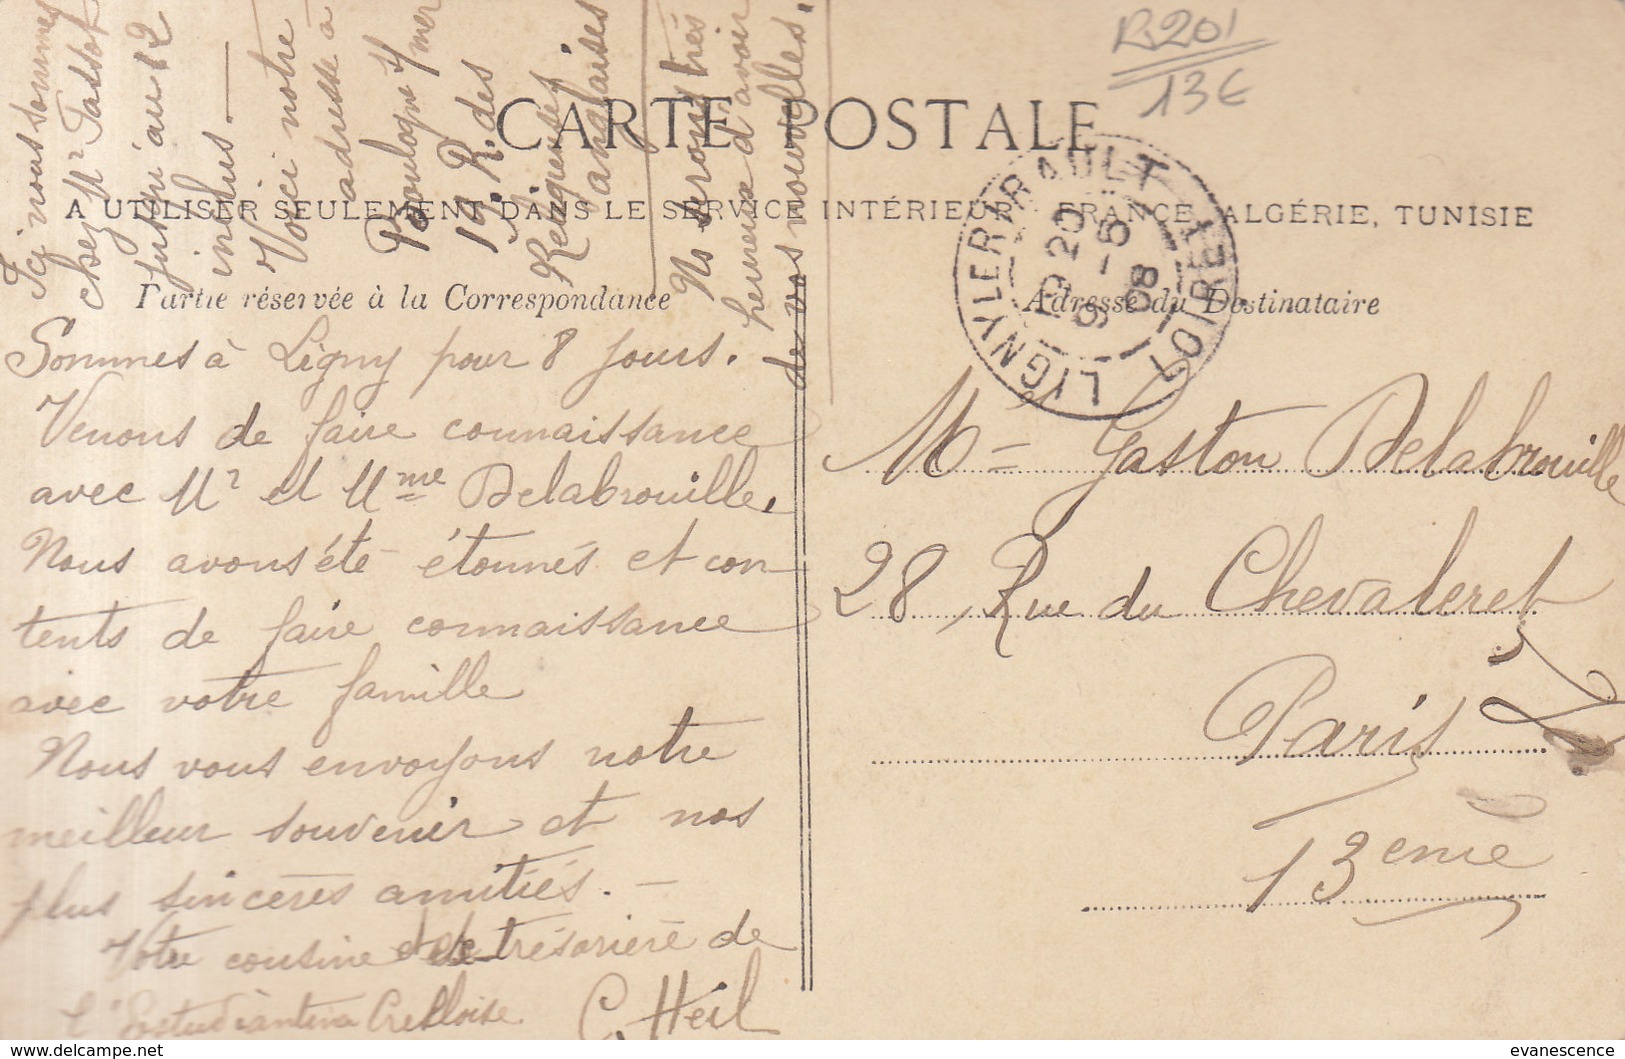 R201
13€
CARTE POSTALE
A UTILISER SEULEMENT DANS LE SERVICE INTÉRIEUR FRANCE, ALGÉRIE, TUNISIE
Partie réservée à la Correspondance
Adresse du Destinataire
LIGNY LE RIBAULT LOIRET
20
5 - 9
08
Sommes à Ligny pour 8 jours.
Venons de faire connaissance
avec Mr et Mme Delabrouille.
Nous avons été étonnés et con-
tents de faire connaissance
avec votre famille
Nous vous envoyons notre
meilleur souvenir et nos
plus sincères amitiés. —
Votre cousine et trésorière de
l'Estudiantina Creilloise C. Heil
Ici nous sommes
chez Mr Tassot
jusqu'au 12
inclus —
Voici notre
adresse à
Boulogne s/mer
19. R. des
Religieuses
anglaises
Ns serons très
heureux d'avoir
de vos nouvelles.
Mr Gaston Delabrouille
28, Rue du Chevaleret
Paris
13eme
evanescence